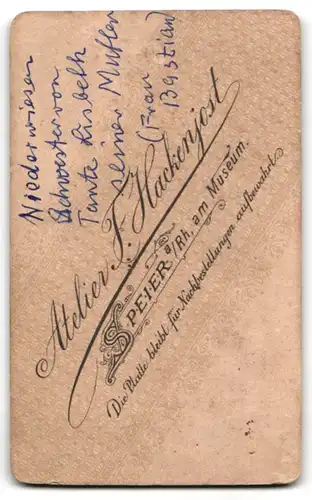 Niederwiesen
Schwester von
Tante Lisbeth
seiner Mutter
(Frau
Bastian)
Atelier F. Hackenjost
SPEIER a/Rh, am Museum.
Die Platte bleibt für Nachbestellungen aufbewahrt.